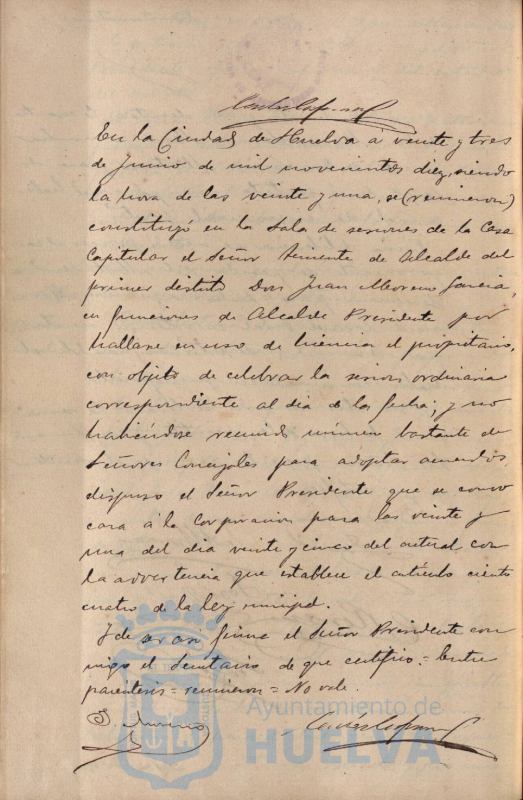 En la Ciudad de Huelva á veinte y tres
de Junio de mil novecientos diez, siendo
la hora de las veinte y una, se (reunieron)
constituyó en la Sala de sesiones de la Casa
Capitular el Señor Teniente de Alcalde del
primer distrito Don Juan Moreno Garcia,
en funciones de Alcalde Presidente por
hallarse en uso de licencia el propietario,
con objeto de celebrar la sesion ordinaria
correspondiente al dia de la fecha; y no
habiéndose reunido número bastante de
Señores Concejales para adoptar acuerdos,
dispuso el Señor Presidente que se convo
cara á la Corporacion para las veinte y
una del dia veinte y cinco del actual, con
la advertencia que establece el artículo ciento
cuatro de la ley municipal.
Y de ser asi firma el Señor Presidente con
migo el Secretario de que certifico.= Entre
parentesis = reunieron = No vale.
J. Moreno
Ayuntamiento de
HUELVA